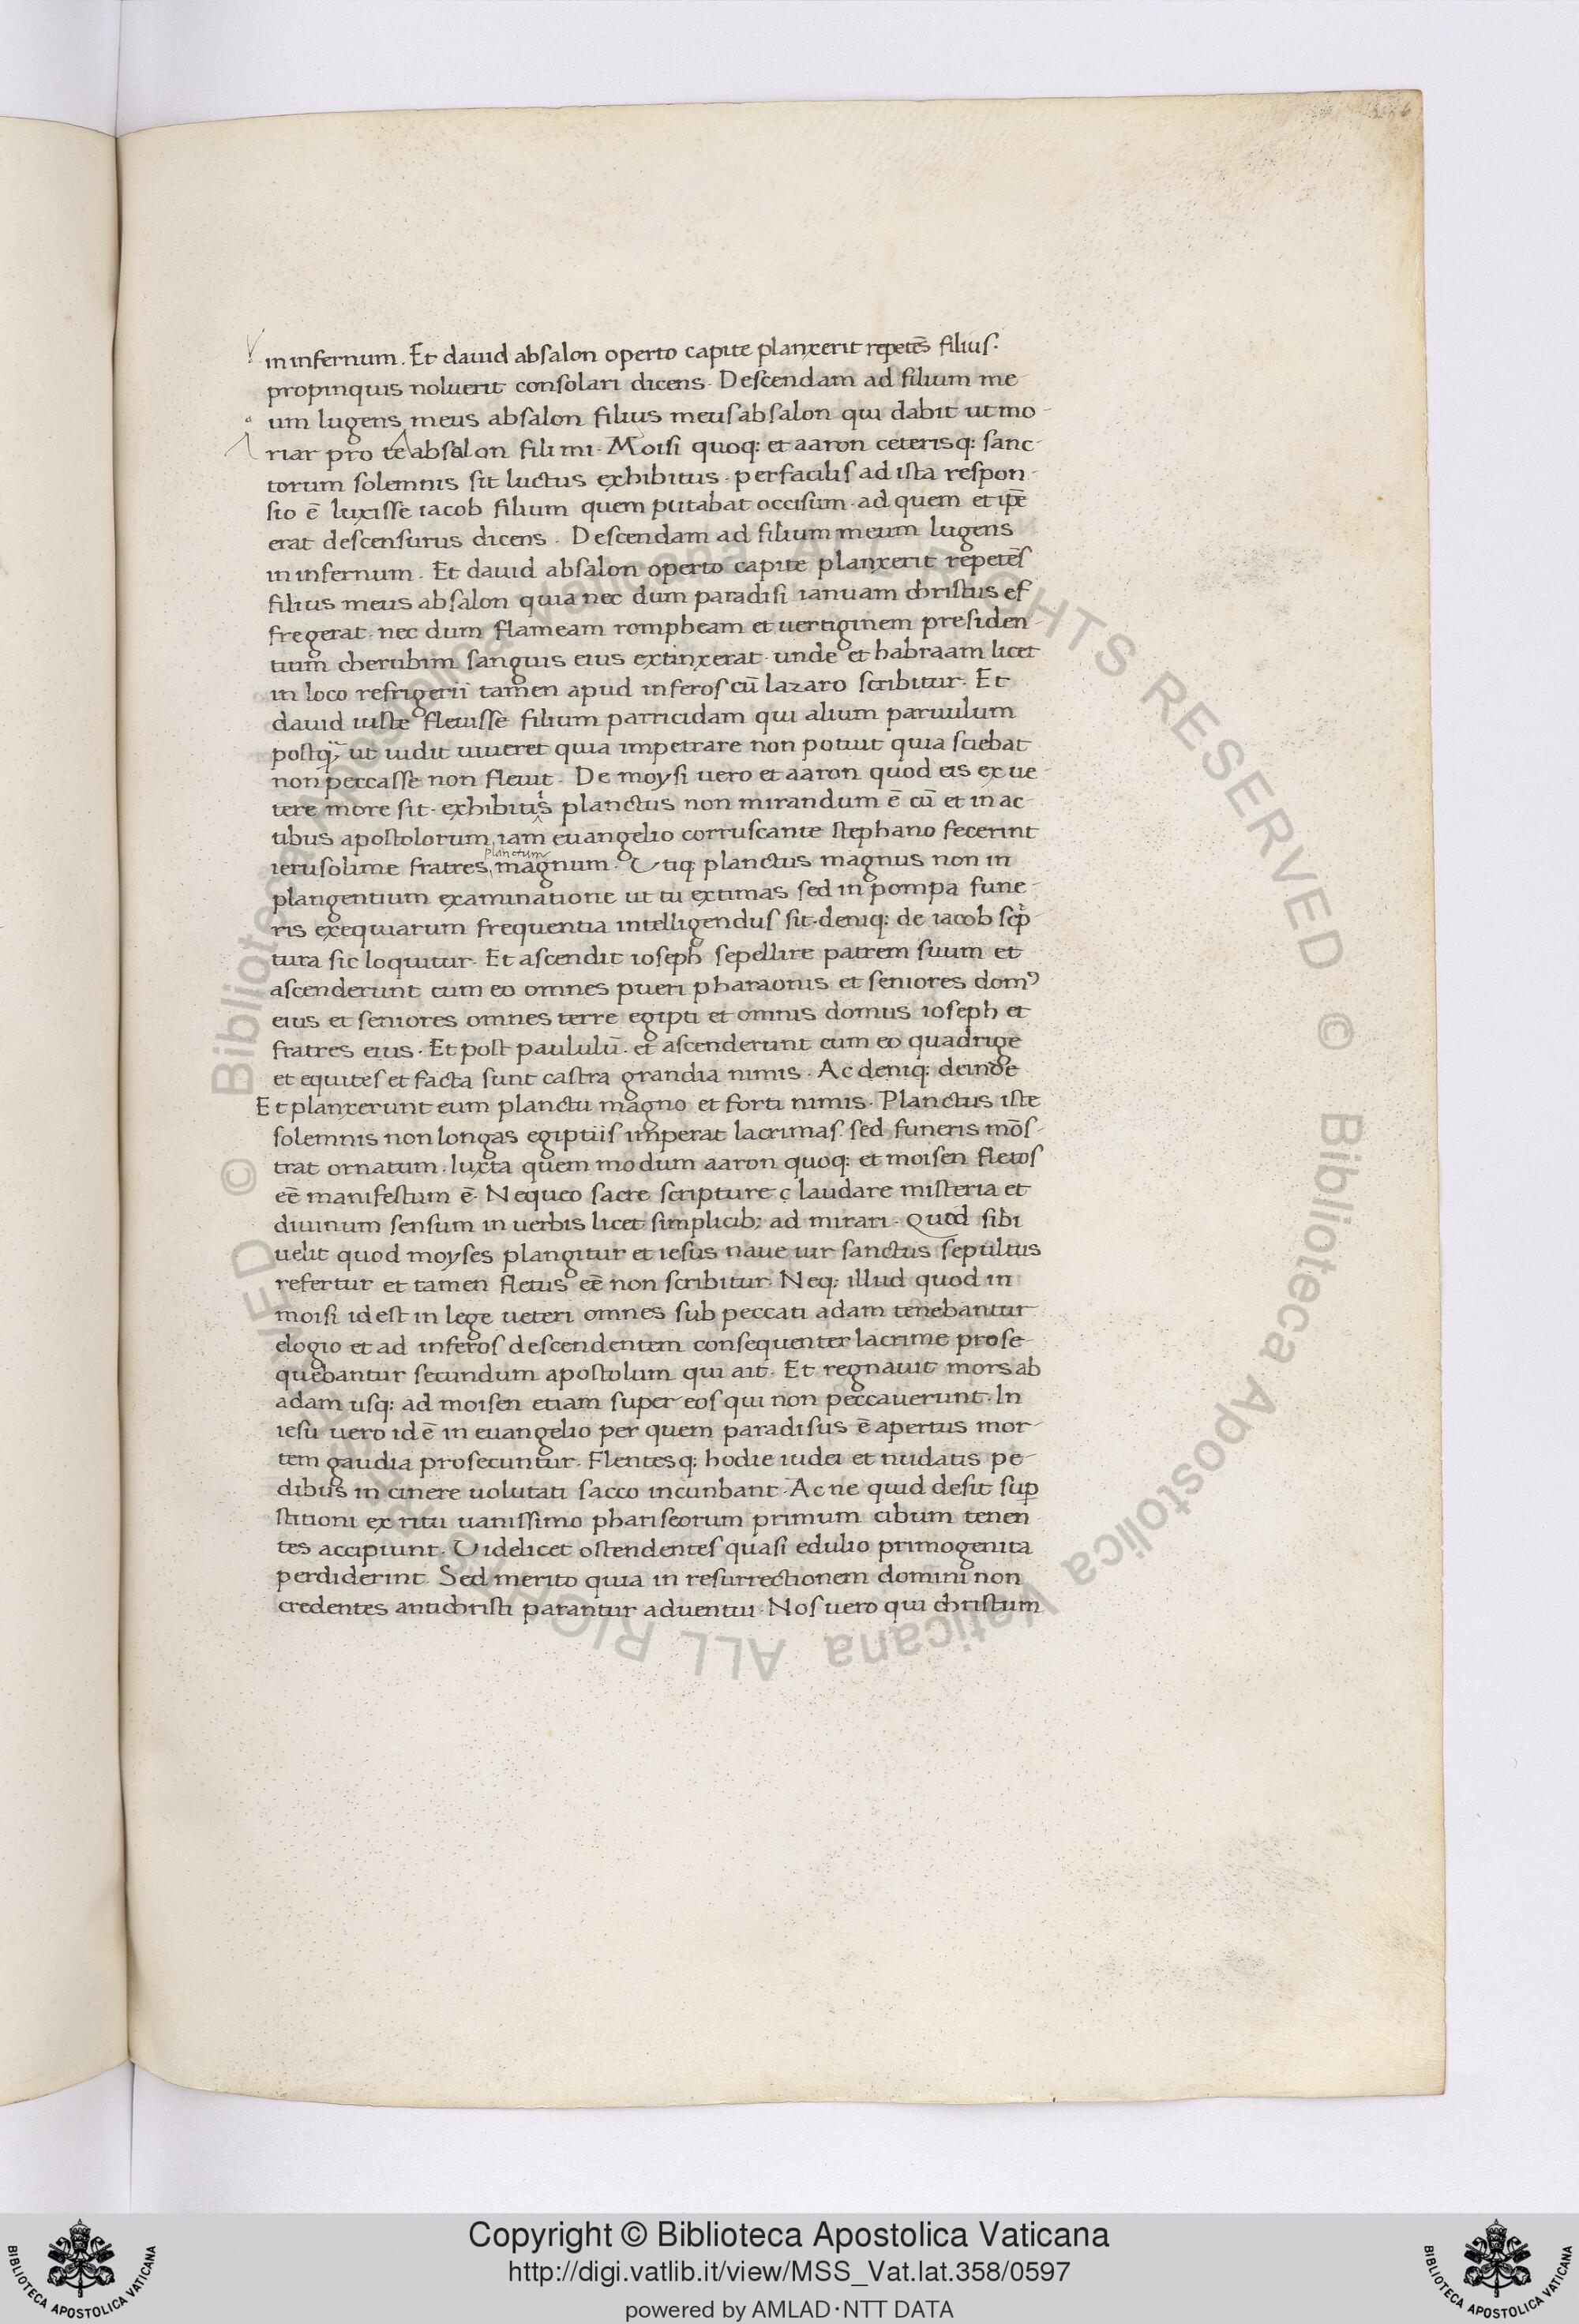 in infernum. Et dauid absalon operto capite planxerit repetēs filius.
propinquis noluerit consolari dicens. Descendam ad filium me
um lugens meus absalon filius meus absalon qui dabit ut mo-
riar pro te absalon fili mi. Moisi quoq: et aaron ceterisq: sanc-
torum solemnis sit luctus exhibitus. perfacilis ad ista respon-
sio ē luxisse iacob filium quem putabat occisum. ad quem et ip̄e
erat descensurus dicens. Descendam ad filium meum lugens
in infernum. Et dauid absalon operto capite planxerit repetēs
filius meus absalon quia nec dum paradisi ianuam christus ef
fregerat. nec dum flameam rompheam et uertiginem presiden-
tium cherubim sanguis eius extinxerat. unde et habraam licet
in loco refrigerii tamen apud inferos cū lazaro scribitur. Et
dauid iuste fleuisse filium parricidam qui alium paruulum
postq̄ ut uidit uiueret quia impetrare non potuit quia sciebat
non peccasse non fleuit. De moysi uero et aaron quod eis ex ue-
tere more sit. exhibitus planctus non mirandum ē cū et in ac-
tibus apostolorum iam euangelio corruscante stephano fecerint
ierusolime fratres planctum magnum. Utiq: planctus magnus non in
plangentium examinatione ut tu extimas sed in pompa fune-
ris exequiarum frequentia intelligendus sit. deniq: de iacob scp̄
tura sic loquitur. Et ascendit ioseph sepellire patrem suum et
ascenderunt cum eo omnes pueri pharaonis et seniores domꝰ
eius et seniores omnes terre egipti et omnis domus ioseph et
fratres eius. Et post paululū. et ascenderunt cum eo quadrige
et equites et facta sunt castra grandia nimis. Ac deniq: deinde
Et planxerunt eum planctu magno et forti nimis. Planctus iste
solemnis non longas egiptiis imperat lacrimas. sed funeris mōs-
trat ornatum. Iuxta quem modum aaron quoq: et moisen fletos
eē manifestum ē. Nequeo sacre scripture ç laudare misteria et
diuinum sensum in uerbis licet simplicib; ad mirari. Quod sibi
uelit quod moyses plangitur et iesus naue uir sanctus sepultus
refertur et tamen fletus eē non scribitur. Neq: illud quod in
moisi id est in lege ueteri omnes sub peccati adam tenebantur
elogio et ad inferos descendentem consequenter lacrime prose-
quebantur secundum apostolum qui ait. Et regnauit mors ab
adam usq: ad moisen etiam super eos qui non peccauerunt. In
iesu uero id ē in euangelio per quem paradisus ē apertus mor-
tem gaudia prosecuntur. Flentesq: hodie iudei et nudatis pe-
dibus in cinere uolutati sacco incunbant. Ac ne quid desit sup̲
stitioni ex ritu uanissimo phariseorum primum cibum tenen
tes accipiunt. Uidelicet ostendentes quasi edulio primogenita
perdiderint. Sed merito quia in resurrectionem domini non
credentes antichristi parantur aduentui. Nos uero qui christum
Copyright © Biblioteca Apostolica Vaticana
http://digi.vatlib.it/view/MSS_Vat.lat.358/0597
powered by AMLAD·NTT DATA
BIBLIOTECA APOSTOLICA VATICANA
BIBLIOTECA APOSTOLICA VATICANA
© Biblioteca Apostolica Vaticana ALL RIGHTS RESERVED © Biblioteca Apostolica Vaticana ALL RIGHTS RESERVED